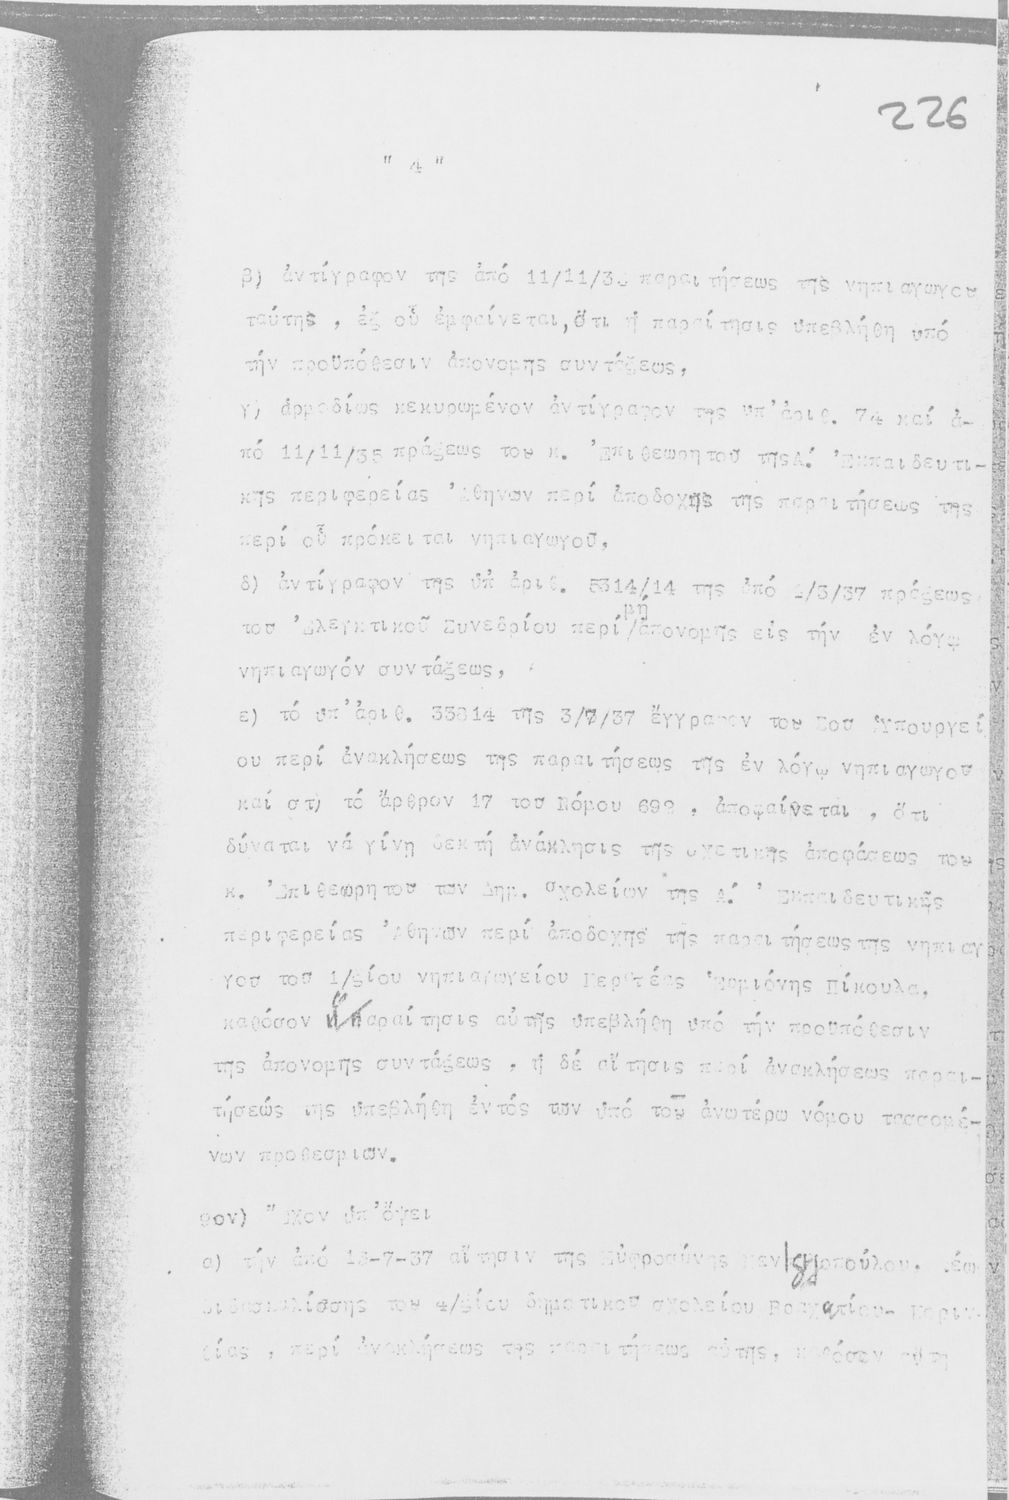 226
" 4 "
β) ἀντίγραφον τῆς ἀπό 11/11/35 παραιτήσεως τῆς νηπιαγωγοῦ
ταύτης , ἐξ οὗ ἐμφαίνεται, ὅτι ἡ παραίτησις ὑπεβλήθη ὑπό
τήν προϋπόθεσιν ἀπονομῆς συντάξεως,
γ) ἁρμοδίως κεκυρωμένον ἀντίγραφον τῆς ὑπ' ἀριθ. 74 καί ἀ-
πό 11/11/35 πράξεως τοῦ κ. Ἐπιθεωρητοῦ τῆς Α.' Ἐκπαιδευτι-
κῆς περιφερείας Ἀθηνῶν περί ἀποδοχῆς τῆς παραιτήσεως τῆς
περί οὗ πρόκειται νηπιαγωγοῦ,
δ) ἀντίγραφον τῆς ὑπ' ἀριθ. 5314/14 τῆς ἀπό /3/37 πράξεως
τοῦ Ἐλεγκτικοῦ Συνεδρίου περί μή /ἀπονομῆς εἰς τήν ἐν λόγῳ
νηπιαγωγόν συντάξεως,
ε) τό ὑπ' ἀριθ. 33814 τῆς 3/7/37 ἔγγραφον τοῦ Σοῦ Ὑπουργεί
ου περί ἀνακλήσεως τῆς παραιτήσεως τῆς ἐν λόγῳ νηπιαγωγοῦ
καί στ) τό ἄρθρον 17 τοῦ Νόμου 692 , ἀποφαίνεται , ὅτι
δύναται νά γίνῃ δεκτή ἀνάκλησις τῆς σχετικῆς ἀποφάσεως τοῦ
κ. Ἐπιθεωρητοῦ τῶν Δημ. Σχολείων τῆς Α.' Ἐκπαιδευτικῆς
περιφερείας Ἀθηνῶν περί ἀποδοχῆς τῆς παραιτήσεως τῆς νηπιαγω
γοῦ τοῦ 1/ξίου νηπιαγωγείου Κερατέας Ἑρμιόνης Πίκουλα,
καθόσον ἡ παραίτησις αὐτῆς ὑπεβλήθη ὑπό τήν προϋπόθεσιν
τῆς ἀπονομῆς συντάξεως , ἡ δέ αἴτησις περί ἀνακλήσεως παραι-
τήσεώς της ὑπεβλήθη ἐντός τῶν ὑπό τοῦ ἀνωτέρω νόμου τασσομέ-
νων προθεσμιῶν.
9ον) Ἔχον ὑπ' ὄψει
α) τήν ἀπό 13-7-37 αἴτησιν τῆς Εὐφροσύνης τέως
διδασκαλίσσης τοῦ 4/ξίου δημοτικοῦ σχολείου Βραχατίου- Κοριν-
θίας , περί ἀνακλήσεως τῆς παραιτήσεως αὐτῆς, καθόσον αὕτη